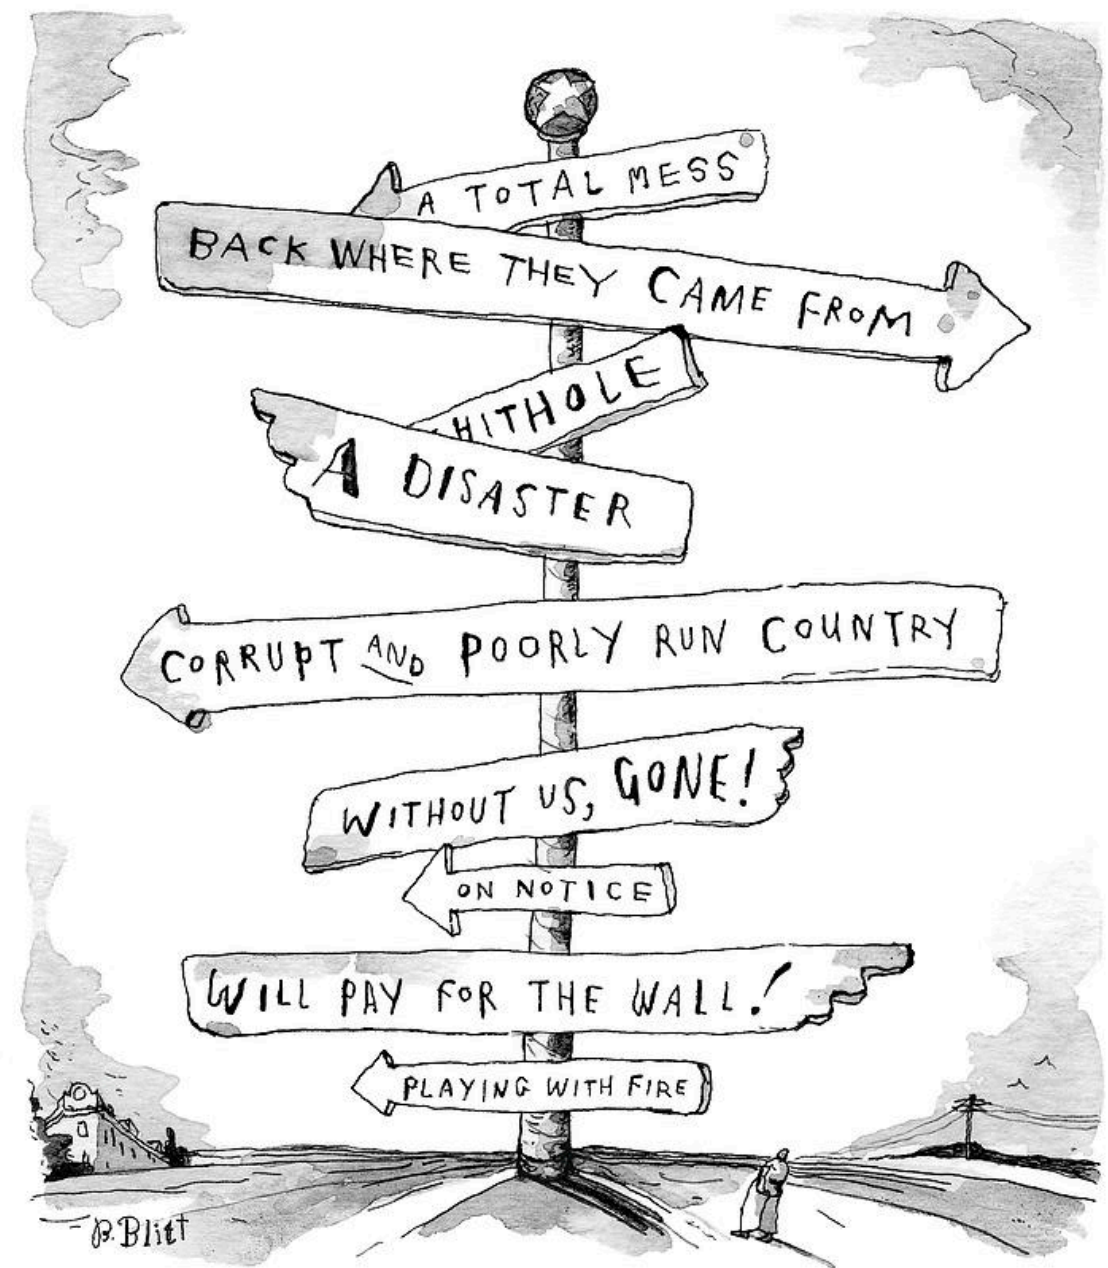 A TOTAL MESS
BACK WHERE THEY CAME FROM
HITHOLE
A DISASTER
CORRUPT AND POORLY RUN COUNTRY
WITHOUT US, GONE!
ON NOTICE
WILL PAY FOR THE WALL!
PLAYING WITH FIRE
B. Blitt